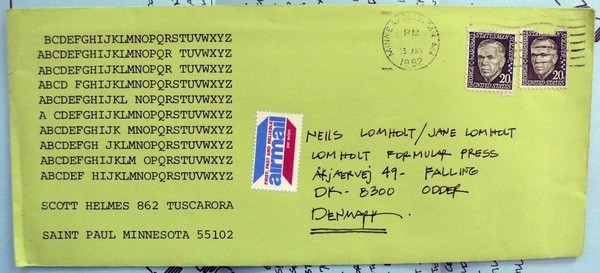 BCDEFGHIJKLMNOPQRSTUVWXYZ
ABCDEFGHIJKLMNOPQR TUVWXYZ
ABCDEFGHIJKLMNOPQR TUVWXYZ
ABCD FGHIJKLMNOPQRSTUVWXYZ
ABCDEFGHIJKL NOPQRSTUVWXYZ
A CDEFGHIJKLMNOPQRSTUVWXYZ
ABCDEFGHIJK MNOPQRSTUVWXYZ
ABCDEFGH JKLMNOPQRSTUVWXYZ
ABCDEFGHIJKLM OPQRSTUVWXYZ
ABCDEF HIJKLMNOPQRSTUVWXYZ
SCOTT HELMES 862 TUSCARORA
SAINT PAUL MINNESOTA 55102
airmail
PM
13
1982
STATESMAN
20
UNITED STATES
STATESMAN
20
NEILS LOMHOLT/JANE LOMHOLT
LOMHOLT FORMULAR PRESS
ÅKJAERVEJ 49- FALLING
DK- 8300 ODDER
DENMARK.